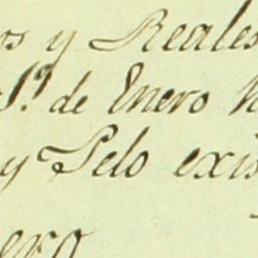 os y Reales
1º de Enero h
y Pelo exis
ero